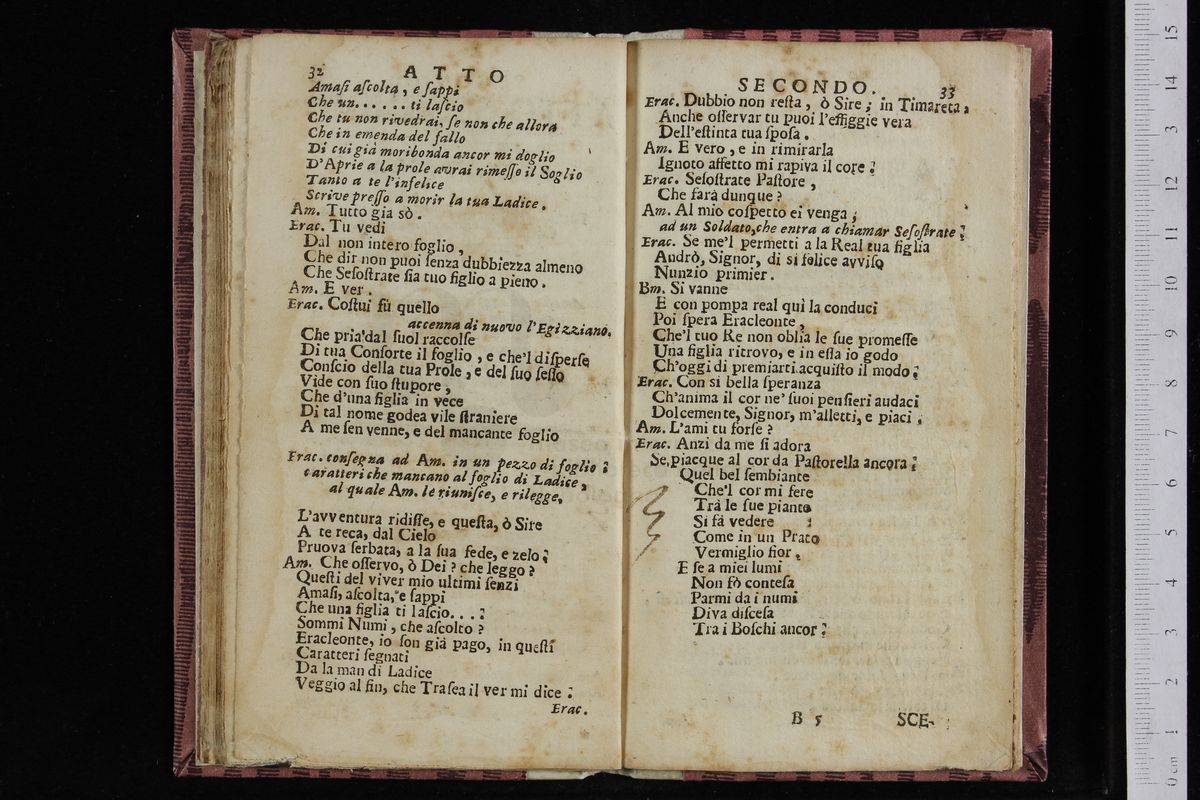 32 ATTO
Amaſi aſcolta, e ſappi
Che un...... ti laſcio
Che tu non rivedrai, ſe non che allora
Che in emenda del fallo
Di cui già moribonda ancor mi doglio
D'Aprie a la prole avrai rimeſſo il Soglio
Tanto a te l'infelice
Scrive preſſo a morir la tua Ladice.
Am. Tutto gia sò.
Erac. Tu vedi
Dal non intero foglio,
Che dir non puoi ſenza dubbiezza almeno
Che Seſoſtrate ſia tuo figlio a pieno.
Am. E ver.
Erac. Coſtui fù quello
accenna di nuovo l'Egizziano.
Che pria dal ſuol raccolſe
Di tua Conſorte il foglio, e che'l diſperſe
Conſcio della tua Prole, e del ſuo ſeſſo
Vide con ſuo ſtupore,
Che d'una figlia in vece
Di tal nome godea vile ſtraniere
A me ſen venne, e del mancante foglio
Erac. conſegna ad Am. in un pezzo di foglio i
caratteri che mancano al foglio di Ladice,
al quale Am. le riuniſce, e rilegge.
L'avventura ridiſſe, e queſta, ò Sire
A te reca, dal Cielo
Pruova ſerbata, a la ſua fede, e zelo.
Am. Che oſſervo, ò Dei? che leggo?
Queſti del viver mio ultimi ſenzi
Amaſi, aſcolta, e ſappi
Che una figlia ti laſcio....
Sommi Numi, che aſcolto?
Eracleonte, io ſon già pago, in queſti
Caratteri ſegnati
Da la man di Ladice
Veggio al fin, che Traſea il ver mi dice.
Erac.
SECONDO. 33
Erac. Dubbio non reſta, ò Sire; in Timareta,
Anche oſſervar tu puoi l'effiggie vera
Dell'eſtinta tua ſpoſa.
Am. E vero, e in rimirarla
Ignoto affetto mi rapiva il core.
Erac. Seſoſtrate Paſtore,
Che farà dunque?
Am. Al mio coſpetto ei venga;
ad un Soldato, che entra a chiamar Seſoſtrate.
Erac. Se me'l permetti a la Real tua figlia
Andrò, Signor, di si felice avviſo
Nunzio primier.
Bm. Si vanne
E con pompa real quì la conduci
Poi ſpera Eracleonte,
Che'l tuo Re non oblia le ſue promeſſe
Una figlia ritrovo, e in eſſa io godo
Ch'oggi di premiarti acquiſto il modo.
Erac. Con si bella ſperanza
Ch'anima il cor ne' ſuoi penſieri audaci
Dolcemente, Signor, m'alletti, e piaci.
Am. L'ami tu forſe?
Erac. Anzi da me ſi adora
Se, piacque al cor da Paſtorella ancora.
Quel bel ſembiante
Che'l cor mi fere
Trà le ſue piante
Si fà vedere
Come in un Prato
Vermiglio fior.
E ſe a miei lumi
Non fò conteſa
Parmi da i numi
Diva diſceſa
Tra i Boſchi ancor.
B 5 SCE-